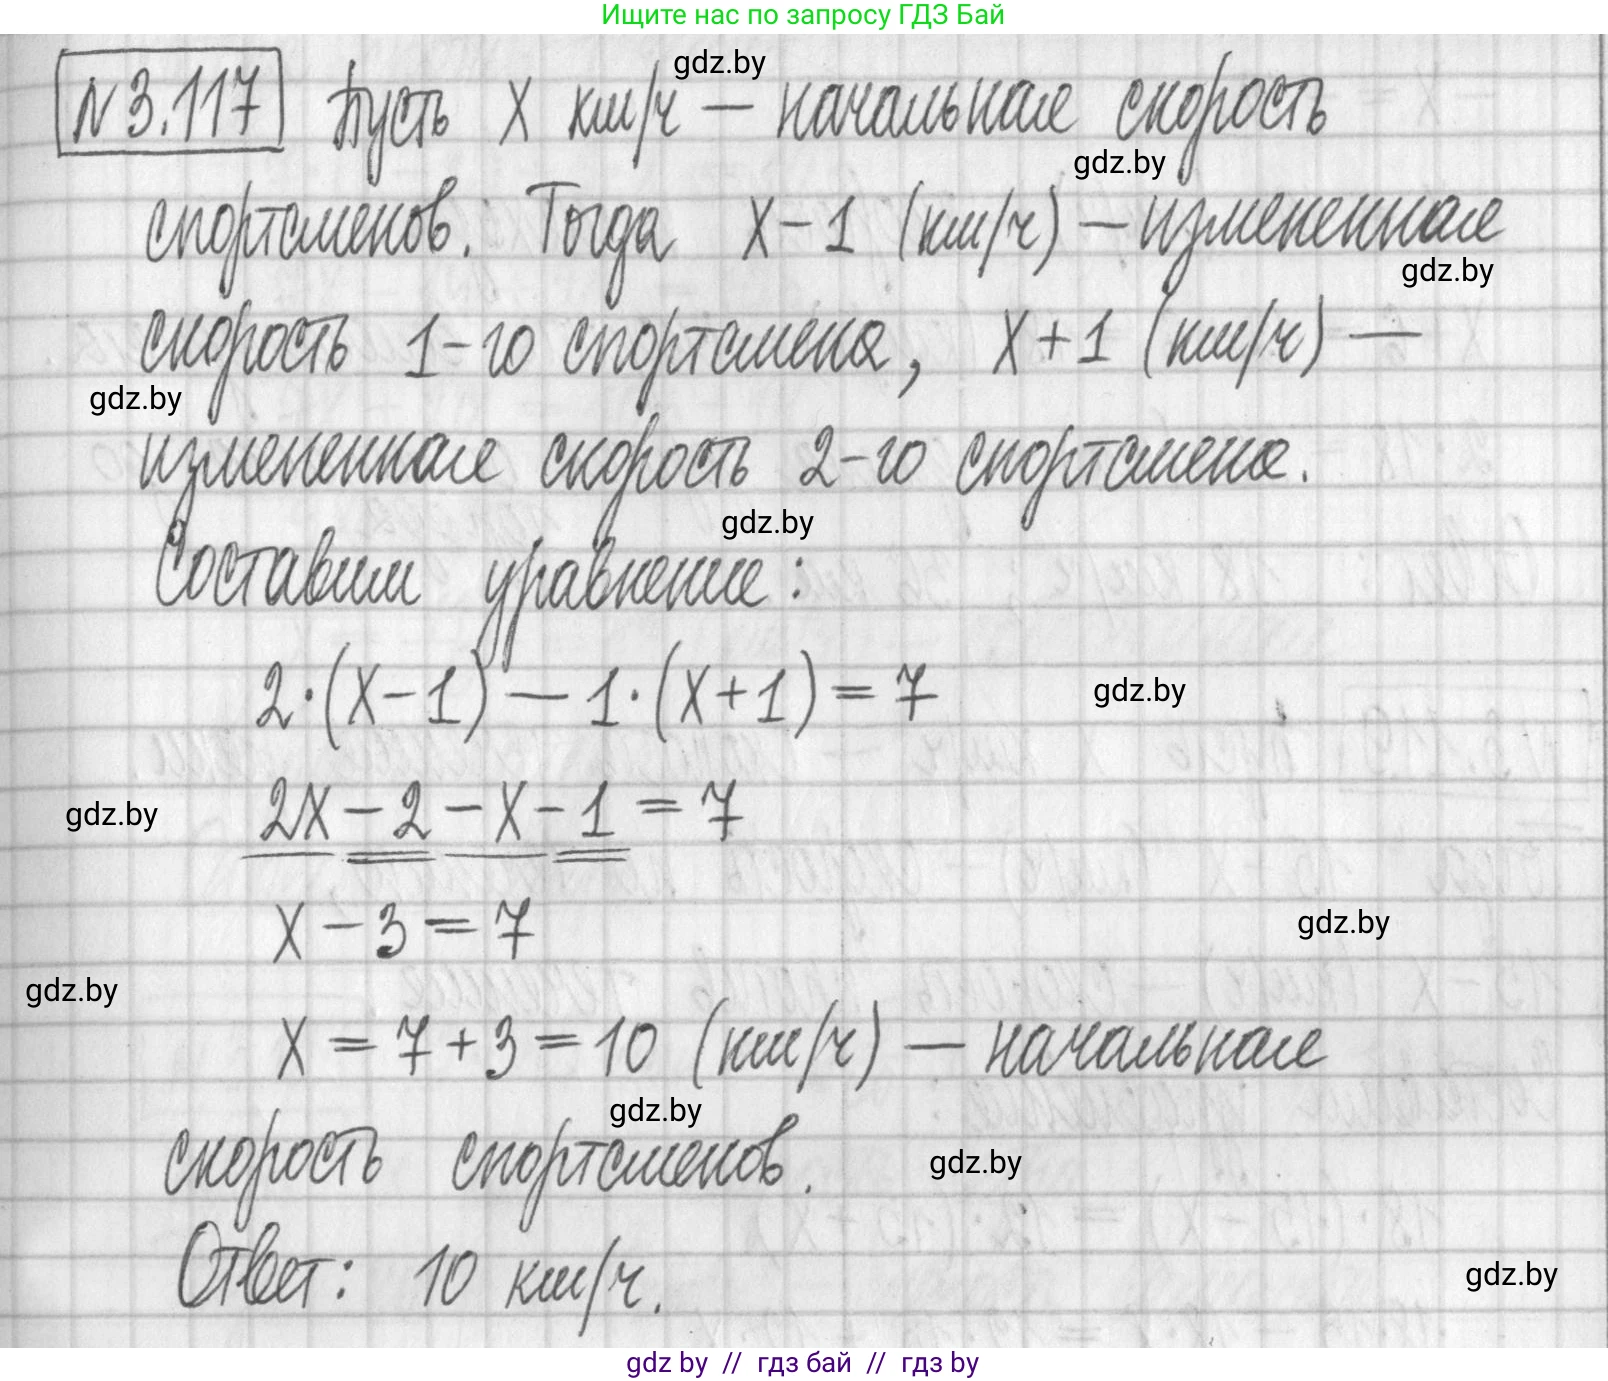 Ищите нас по запросу ГДЗ Бай
gdz.by
№3.117 Пусть x км/ч — начальная скорость
gdz.by
спортсменов. Тогда x-1 (км/ч) — измененная
gdz.by
скорость 1-го спортсмена, x+1 (км/ч) —
gdz.by
измененная скорость 2-го спортсмена.
gdz.by
Составим уравнение:
2·(x-1) — 1·(x+1) = 7
gdz.by
2x - 2 - x - 1 = 7
gdz.by
x - 3 = 7
gdz.by
gdz.by
x = 7 + 3 = 10 (км/ч) — начальная
gdz.by
скорость спортсменов.
gdz.by
Ответ: 10 км/ч.
gdz.by
gdz by // гдз бай // гдз by